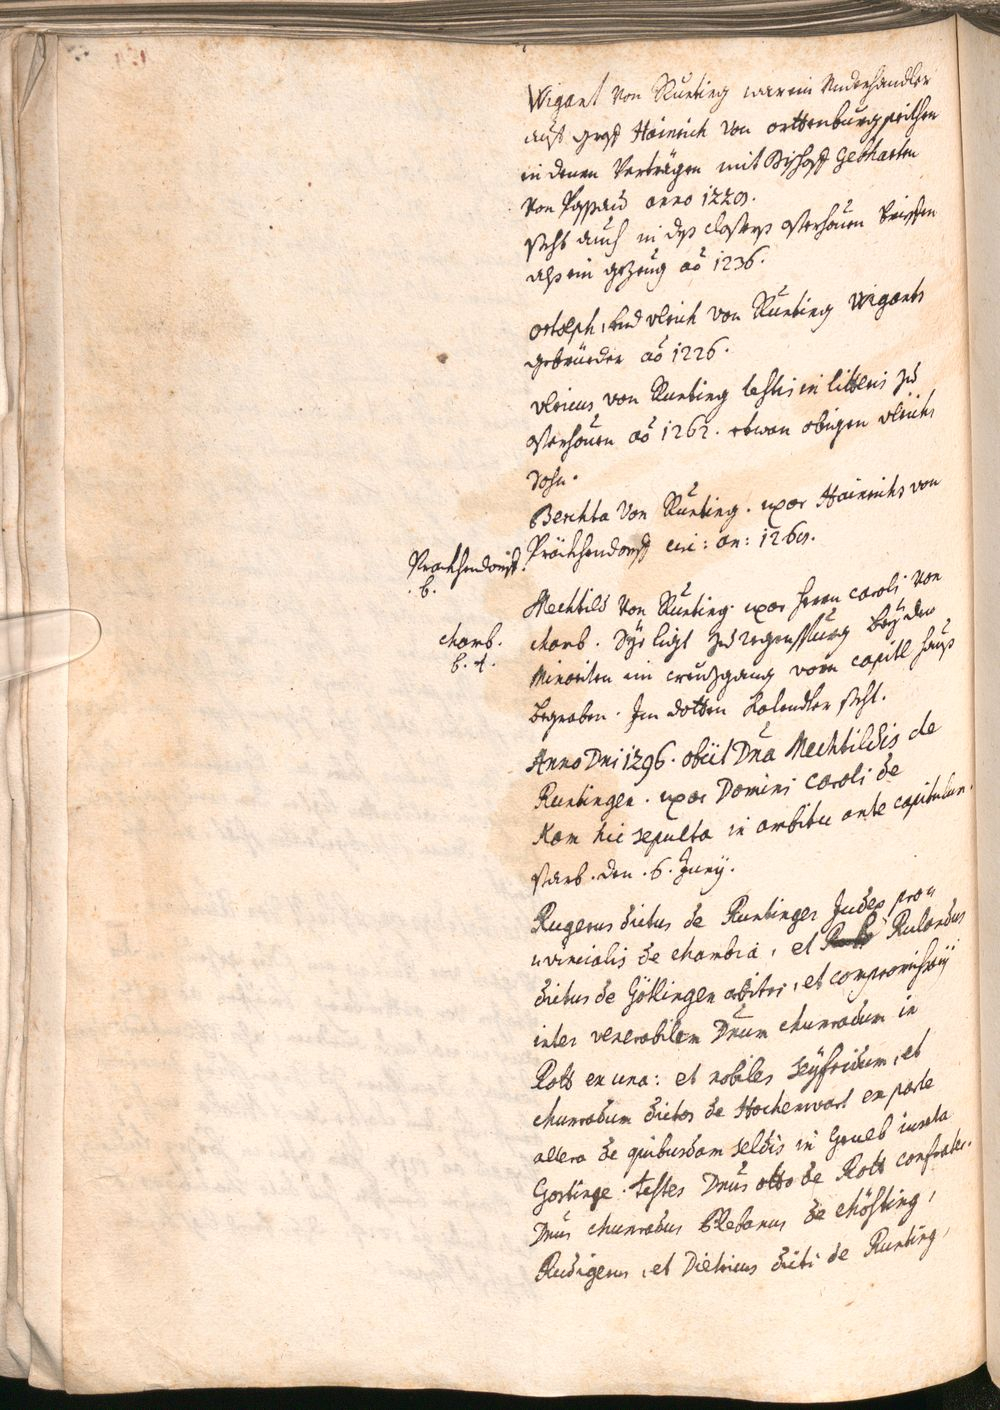 Wigant von Runting war ein Underhandler
auf graf Hainrich von orttenburg seithen
in denen Verträgen mit Bischoff Gebharten
von Passau anno 1220.
steht auch in dess closters osterhouen brieffen
alss ein gezeug aõ 1236.
ortolph, und vlrich von Runting Wigants
gebrüeder aõ 1226.
vlricus von Runting testis in litteris zu
osterhouen aõ 1262. etwan obigen vlrichs
Sohn.
Berchta von Runting. uxor Hainrichs von
Prackhendorff. Präckhendorff : an: 1260.
b.
Mechtild von Runting. uxor herrn caroli von
chamb. chamb. Sye ligt zu regenspurg bey den
b. 4. Minoriten im creuzgang vorm capitl hauss
begraben. Im dotten Kalendler steht.
Anno Dni 1296. obiit Dña Mechtildis de
Runtingen. uxor Domini Caroli de
Kam hic sepulta in ambitu ante capitulum.
starb. den. 6. Junij.
Rugerus dictus de Runtinger Judex pro„
„vincialis de chambia, et Rulandus
dictus de Göttingen arbitri, et compromissarij
inter venerabilem Dnum chunradum in
Rott ex una: et nobiles Seyfridum, et
chunradum dictos de Hochenwart ex parte
altera de quibusdam seldis in Grueb iuxta
Gostinge. testes Dnus otto de Rott confrater.
Dnus chunradus Plebanus de chösting,
Rudigerus, et Dietricus dicti de Runting,